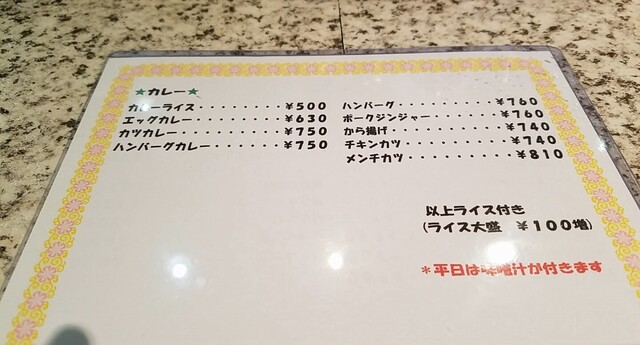 ★カレー★
カレーライス・・・・・・・・¥500
エッグカレー・・・・・・・・¥630
カツカレー・・・・・・・・・¥750
ハンバーグカレー・・・・・・¥750
ハンバーグ・・・・・・・・・¥760
ポークジンジャー・・・・・・¥760
から揚げ・・・・・・・・・・¥740
チキンカツ・・・・・・・・・¥740
メンチカツ・・・・・・・・・¥810
以上ライス付き
(ライス大盛 ¥100増)
*平日は味噌汁が付きます